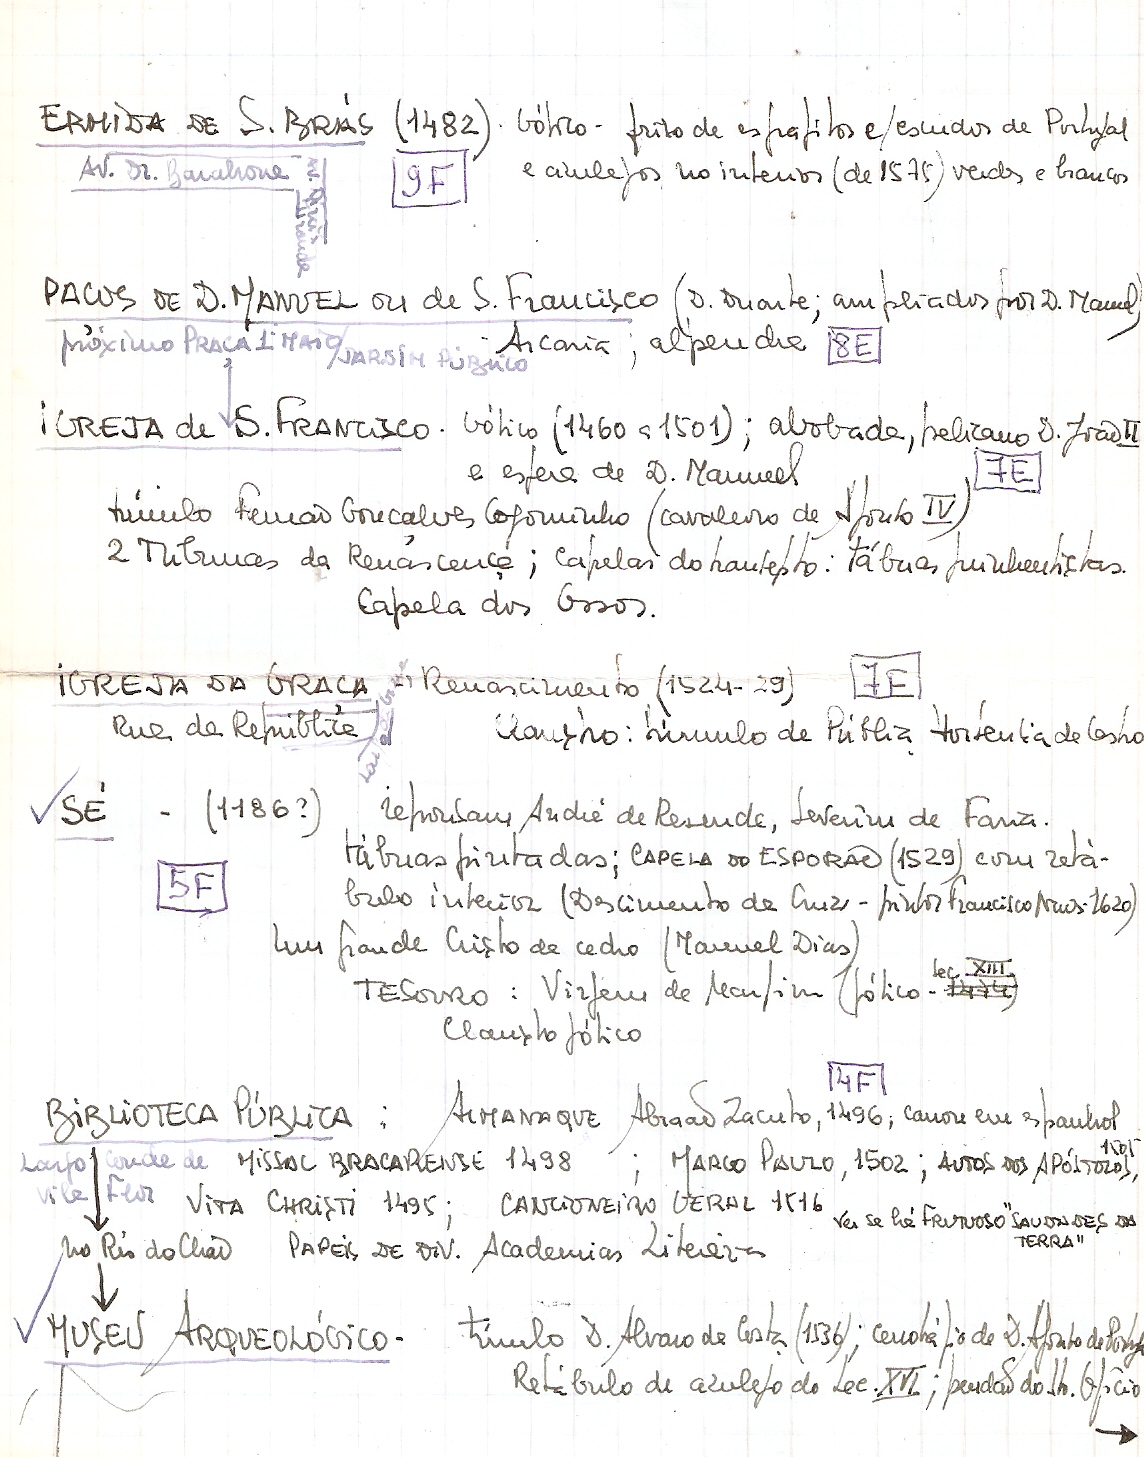 ERMIDA DE S. BRÁS (1482). Gótico - friso de esgrafitos c/escudos de Portugal
Av. Dr. Barahona
9F
e azulejos no interior (de 1575) verdes e brancos
PAÇOS DE D. MANUEL ou de S. Francisco (D. Duarte; ampliados por D. Manuel)
próximo PRAÇA 1º MAIO/JARDIM PÚBLICO
- Arcaria; alpendre 8E
IGREJA de S. FRANCISCO. Gótico (1460 a 1501); abobada, pelicano D. João II
e esfera de D. Manuel 7E
túmulo Fernão Gonçalves Cogominho (cavaleiro de Afonso IV)
2 Tribunas da Renascença; Capelas do transepto: tábuas quinhentistas.
Capela dos Ossos.
IGREJA DA GRAÇA - Renascimento (1524-29) 7F
Rua da República
Claustro: túmulo de Pública Hortênsia de Castro
SÉ - (1186?) repousam André de Resende, Severim de Faria.
5F
tábuas pintadas; CAPELA DO ESPORÃO (1529) com retá-
bulo interior (Descimento da Cruz - pintor Francisco Nunes-1620)
Um grande Cristo de cedro (Manuel Dias)
TESOURO: Virgem de Marfim (gótico - Sec. XIII)
Claustro gótico
4F
BIBLIOTECA PÚBLICA: ALMANAQUE Abraão Zacuto, 1496; canon em espanhol
Largo Conde de
Vila Flor
MISSAL BRACARENSE 1498; MARCO PAULO, 1502; AUTOS DOS APÓSTOLOS, 1505
VITA CHRISTI 1495; CANCIONEIRO GERAL 1516
Ver se há FRUTUOSO "SAUDADES DA
TERRA"
no Rés do Chão PAPÉIS DE DIV. Academias Literárias
MUSEU ARQUEOLÓGICO - túmulo D. Alvaro da Costa (1536); cenotáfio de D. Afonso de Portugal
Retábulo de azulejo do Sec. XVI; pendão do St. Ofício